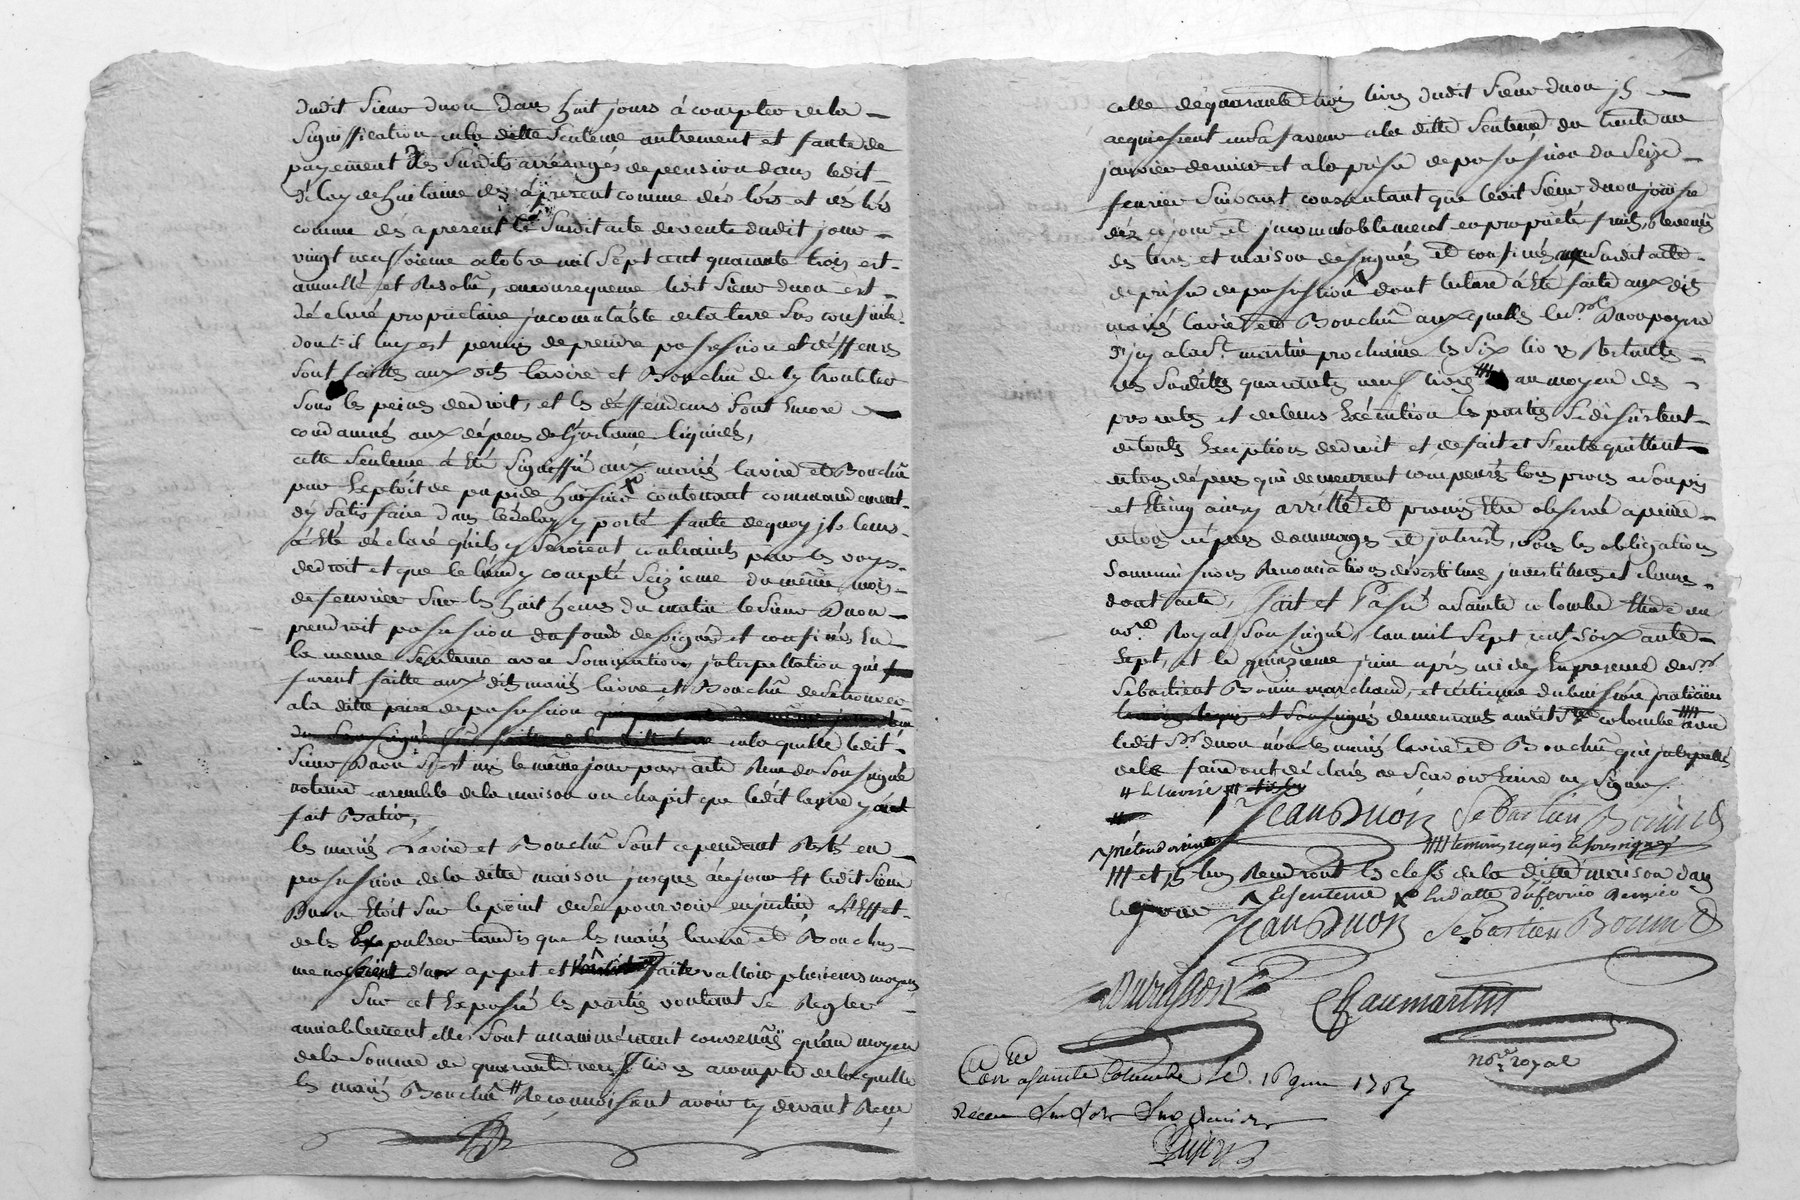 dudit Sieur duon dans huit jours à compter de la
Signiffication de la ditte Sentence autrement et faute de
payement des Surdits arrérages de pension dans ledit
délay de huitaine dès àprésent comme dès lors et dès lors
comme dès àprésent le Surdit acte de vente dudit jour
vingt neufvieme octobre mil Sept cent quarante trois est
annullé et Resolu, en consequence ledit Sieur duon est
déclaré propriétaire jncomutable de la terre Sus confinée
dont il luy est permis de prendre possession et déffences
Sont faittes aux dits lavire et Bouchu de ly troubler
Sous les peines de droit, et les déffendeurs Sont Encore
condamnés aux dépens de liquidés,
cette Sentence à Eté Signiffié aux mariés lavire et Bouchu
par Exploit de huissier contenant commandement
dy Satisfaire dans le délay y porté faute dequoy jls leurs
à Eté déclaré quils y Seroient contraints par les voyes
de droit et que le lundy compté Seizieme du même mois
de fevrier Sur les huit heures du matin le Sieur Duon
prendroit possession du fonds désigné et confiné En
la meme Sentence avec Sommation jnterpellation qui
furent faitte aux dits mariés lavire et Bouchu de Se trouver
à la ditte prise de possession
de laquelle ledit
Sieur Duon S'est mis le même jour par acte Reçu du Soussigné
notaire ensemble de la maison ou chapit que ledit lavire y avoit
fait Batir,
les mariés Lavire et Bouchu Sont cependant Restés en
possession de la ditte maison jusques à ce jour et ledit Sieur
Duon Etoit Sur le point de Se pourvoir en justice à l'Effet
de les Expulser tandis que les mariés lavire et Bouchu
menassoient d'un appel et faire valloir plusieurs moyens
Sur cet Exposé les parties voulant Se Regler
amiablement elles Sont unanimément convenuës qu'au moyen
de la Somme de quarante neuf livres à compte de laquelle
les mariés Bouchu # Reconnoissent avoir cy devant Reçu
celle de quarante trois livres dudit Sieur duon jls
acquiessent en Sa faveur à la ditte Sentence du trente un
janvier dernier et à la prise de possession du Seize
fevrier Suivant consentant que ledit Sieur duon jouisse
dèz ce jour et jncomutablement en propriété fruits, Revenus
des terres et maison désignés et confinés Surdit acte
de prise de possession dont lecture à Eté faite aux dits
mariés lavire et Bouchu auxquels le Sr. Duon payera
d'jcy à la St. martin prochaine les Six livres Restantes
des Surdittes quarante neuf livres au moyen des
presentes et de leurs Exécution les parties Se désistent
de touttes Exceptions de droit et de fait et S'entre quittent
de tous dépens qui demeurent compensés tous procès assoupis
et Eteins ainsy arrêtté et promis Etre observé à peine
de tous dépens dommages et jnterests, Sous les obligations
Soumissions Renonciations devestitures jnvestitures et clauses
dont acte, fait et Passé à Sainte colombe Etude du
nore Royal Soussigné, l'an mil Sept cent Soixante
Sept, et le quinzieme juin après midy En presence de Sr
Sebastient Bonin marchand, et Etienne dubuisson praticien
temoins requis et Soussignés demeurants audit Ste colombe avec
ledit Sr. duon non les mariés lavire et Bouchu, qui jnterpellés
de le faire ont déclarés ne Scavoir Ecrire ny Signer.
# lavire
Jean Duon Sebastien Bonin
prétend avoir
#### temoins requis et Soussignés
### et jls luy Rendront les clefs de la ditte maison dans
ce jour
^ la sentence x En datte du fevrier dernier
Jean Duon Sebastien Bonin
Dubuisson Chaumartin
nore royal
Con.lé a Sainte Colombe Le 16 juin 1767
Recu